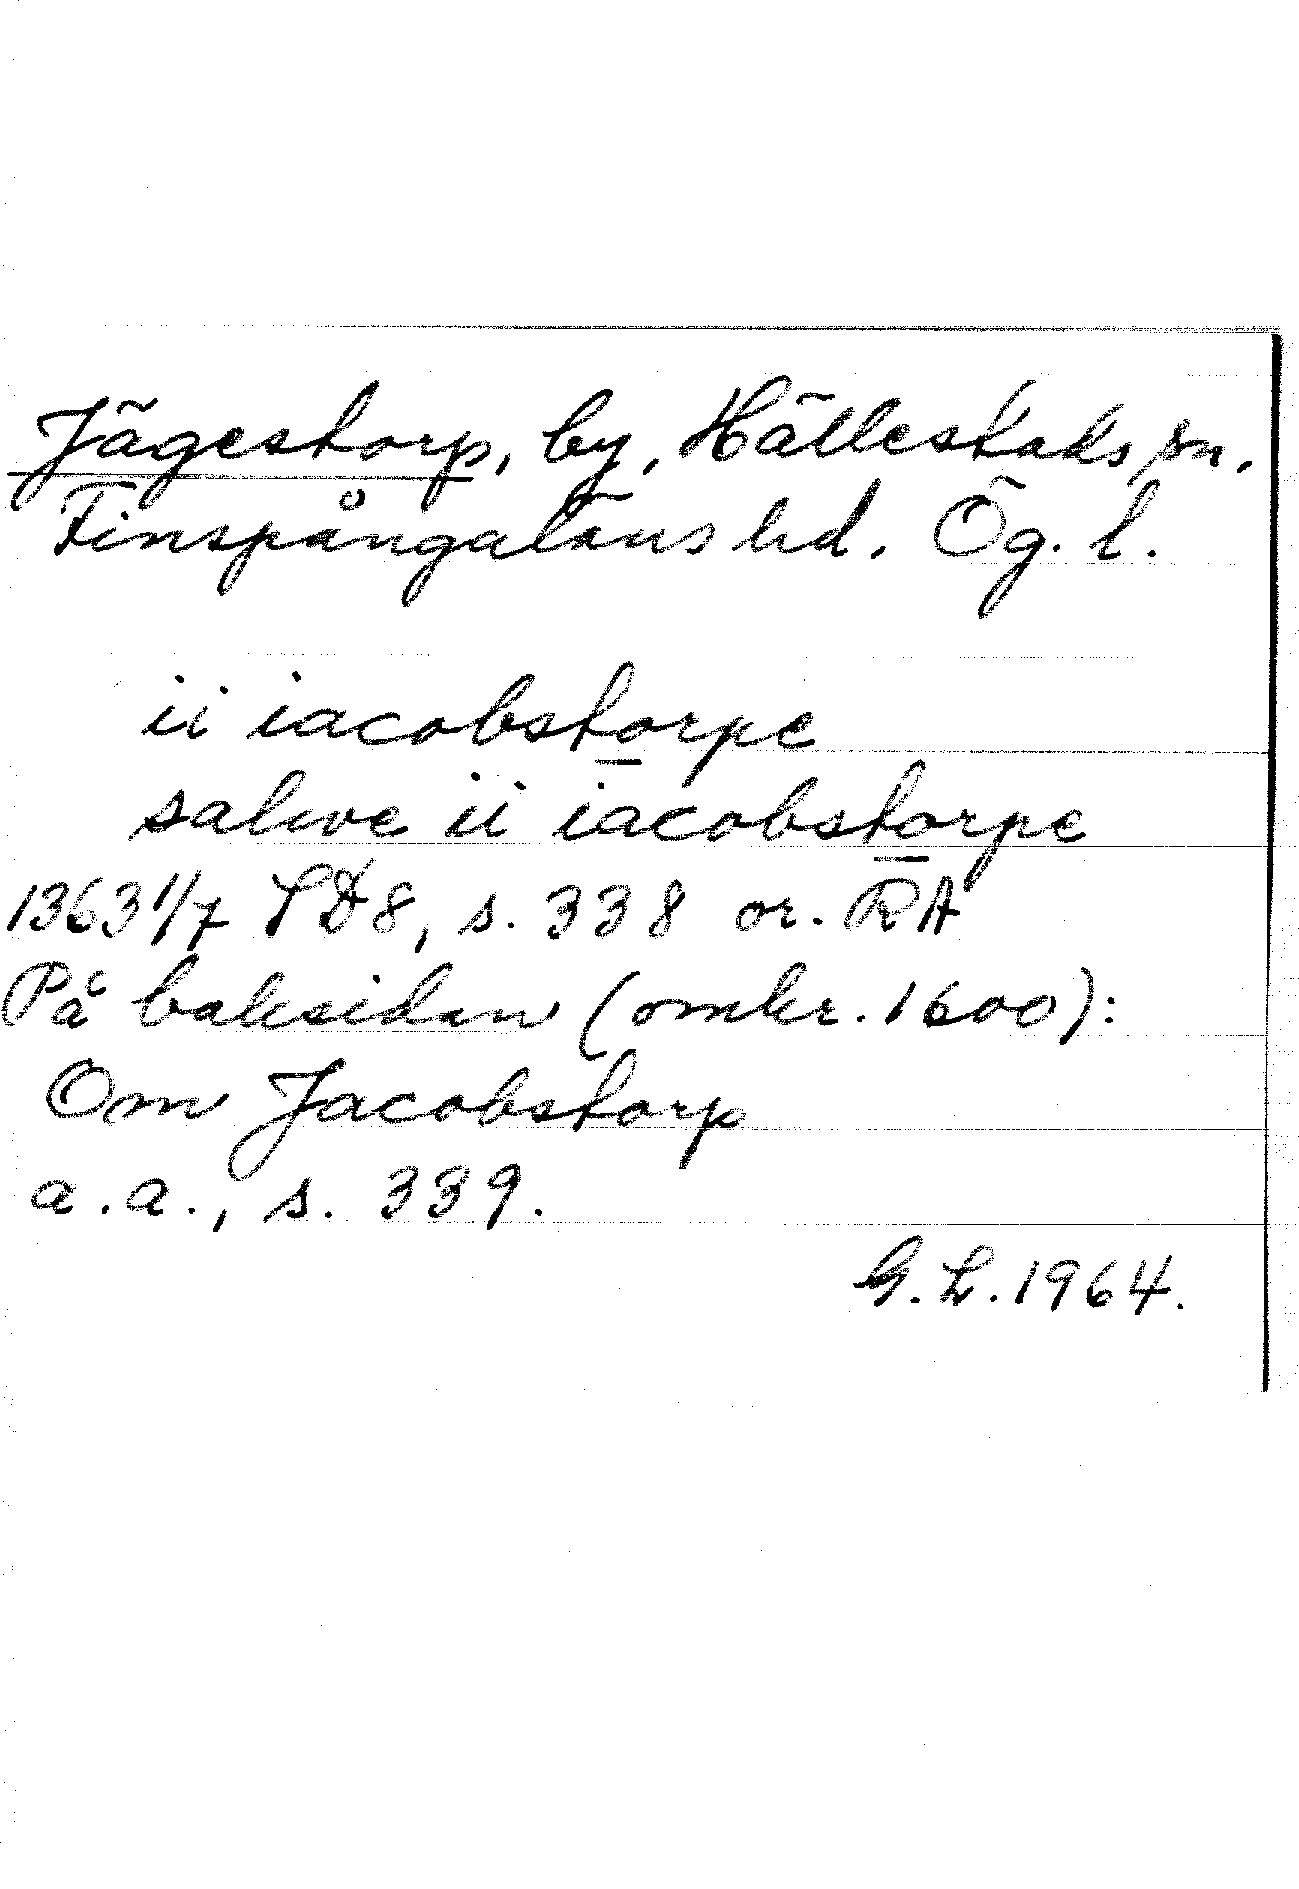 Jägestorp, by, Hällestads sn.
Finspångaläns hd. Ög. l.
ii iacobstorpe
salwe ii iacobstorpe
1363 1/7 SD 8, s. 338 or. RA
På baksidan (omkr. 1600):
Om Jacobstorp
a.a., s. 339.
G.L. 1964.